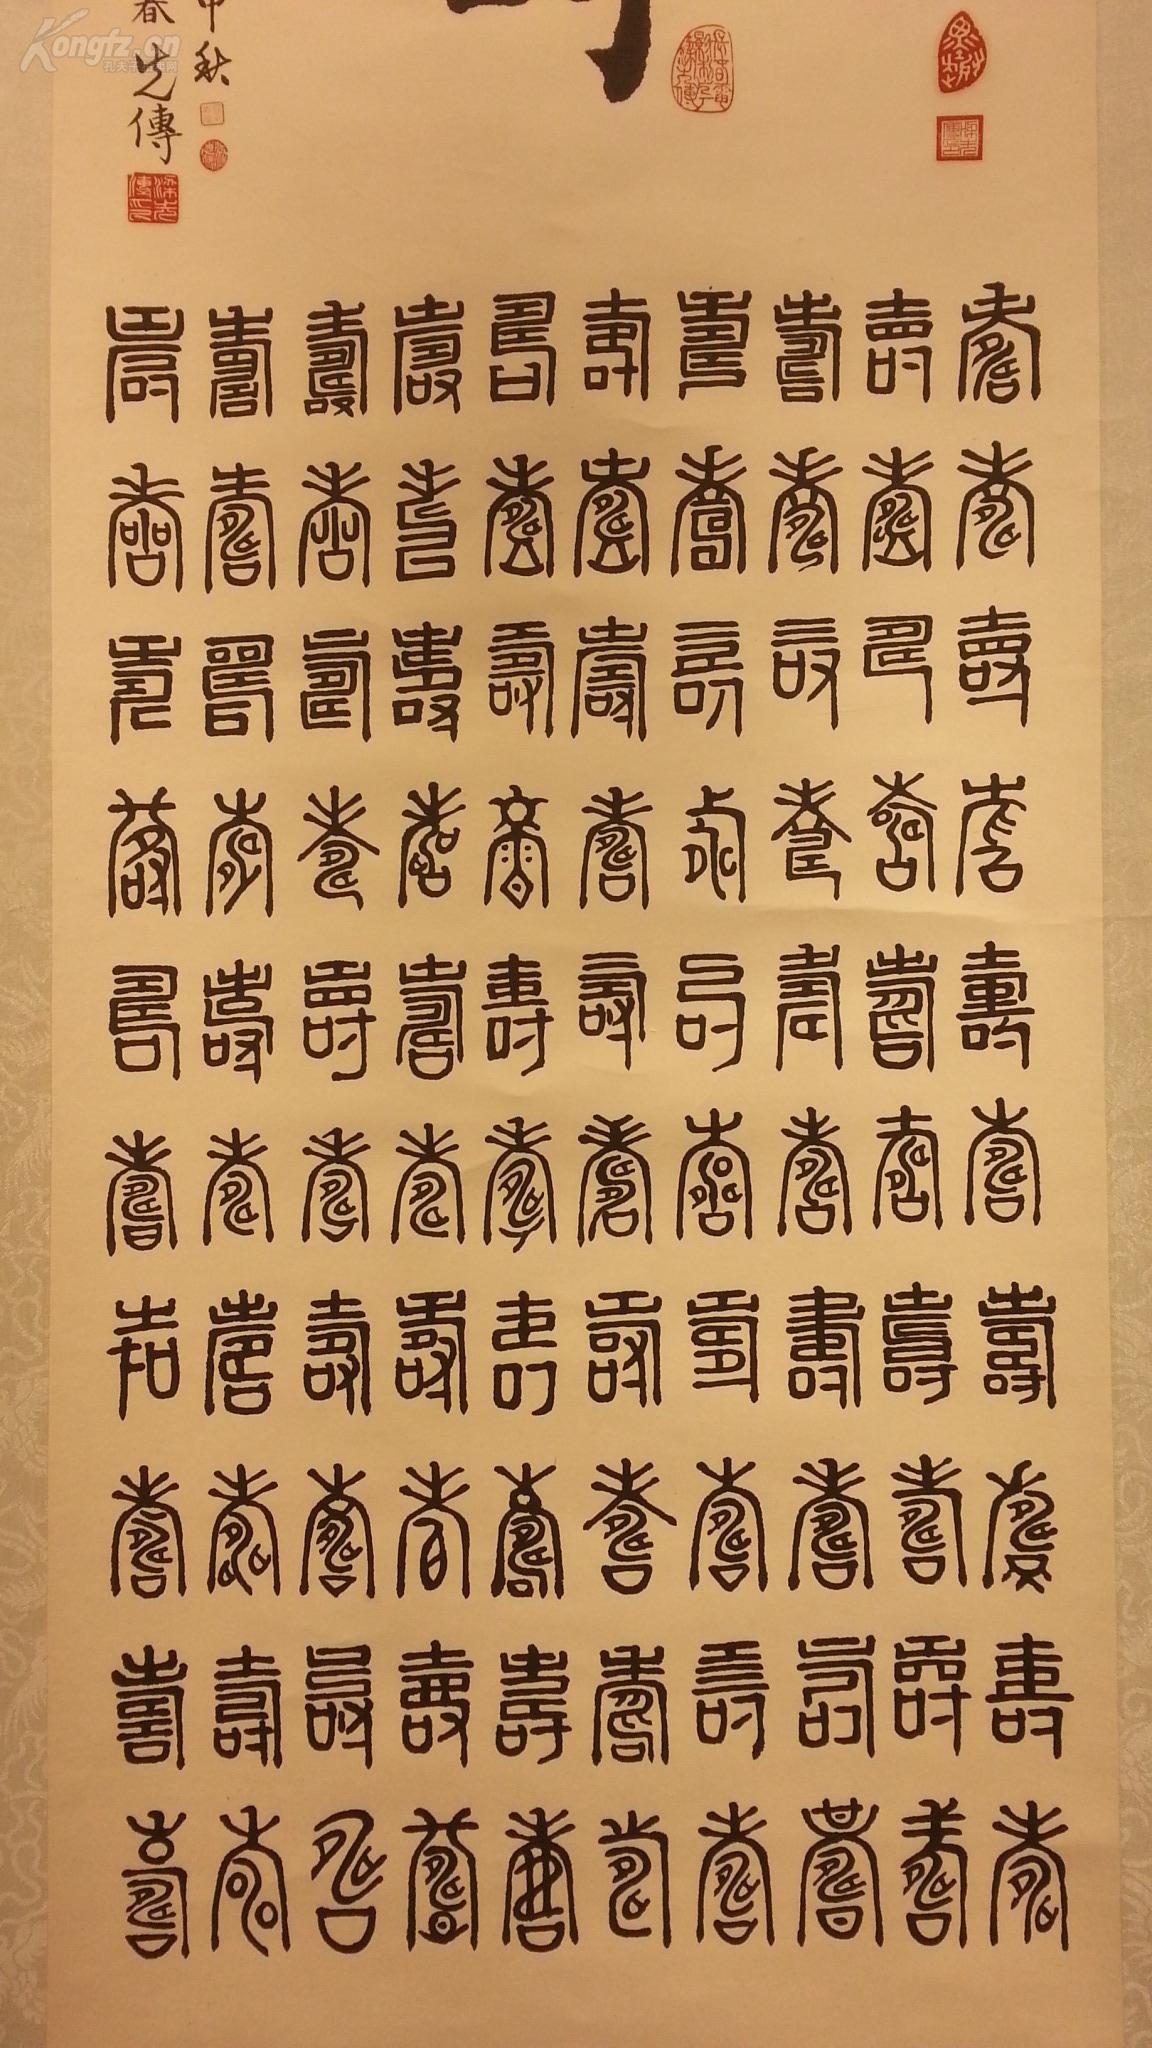 申秋
春先傳
壽壽壽壽壽壽壽壽壽壽
壽壽壽壽壽壽壽壽壽壽
壽壽壽壽壽壽壽壽壽壽
壽壽壽壽壽壽壽壽壽壽
壽壽壽壽壽壽壽壽壽壽
壽壽壽壽壽壽壽壽壽壽
壽壽壽壽壽壽壽壽壽壽
壽壽壽壽壽壽壽壽壽壽
壽壽壽壽壽壽壽壽壽壽
壽壽壽壽壽壽壽壽壽壽
Kongfz.cn